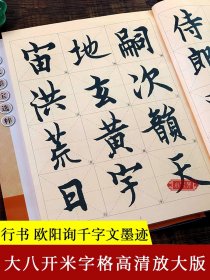 侍郎
嗣次韻天
地玄黃宇
宙洪荒日
选粹
行书 欧阳询千字文墨迹
大八开米字格高清放大版